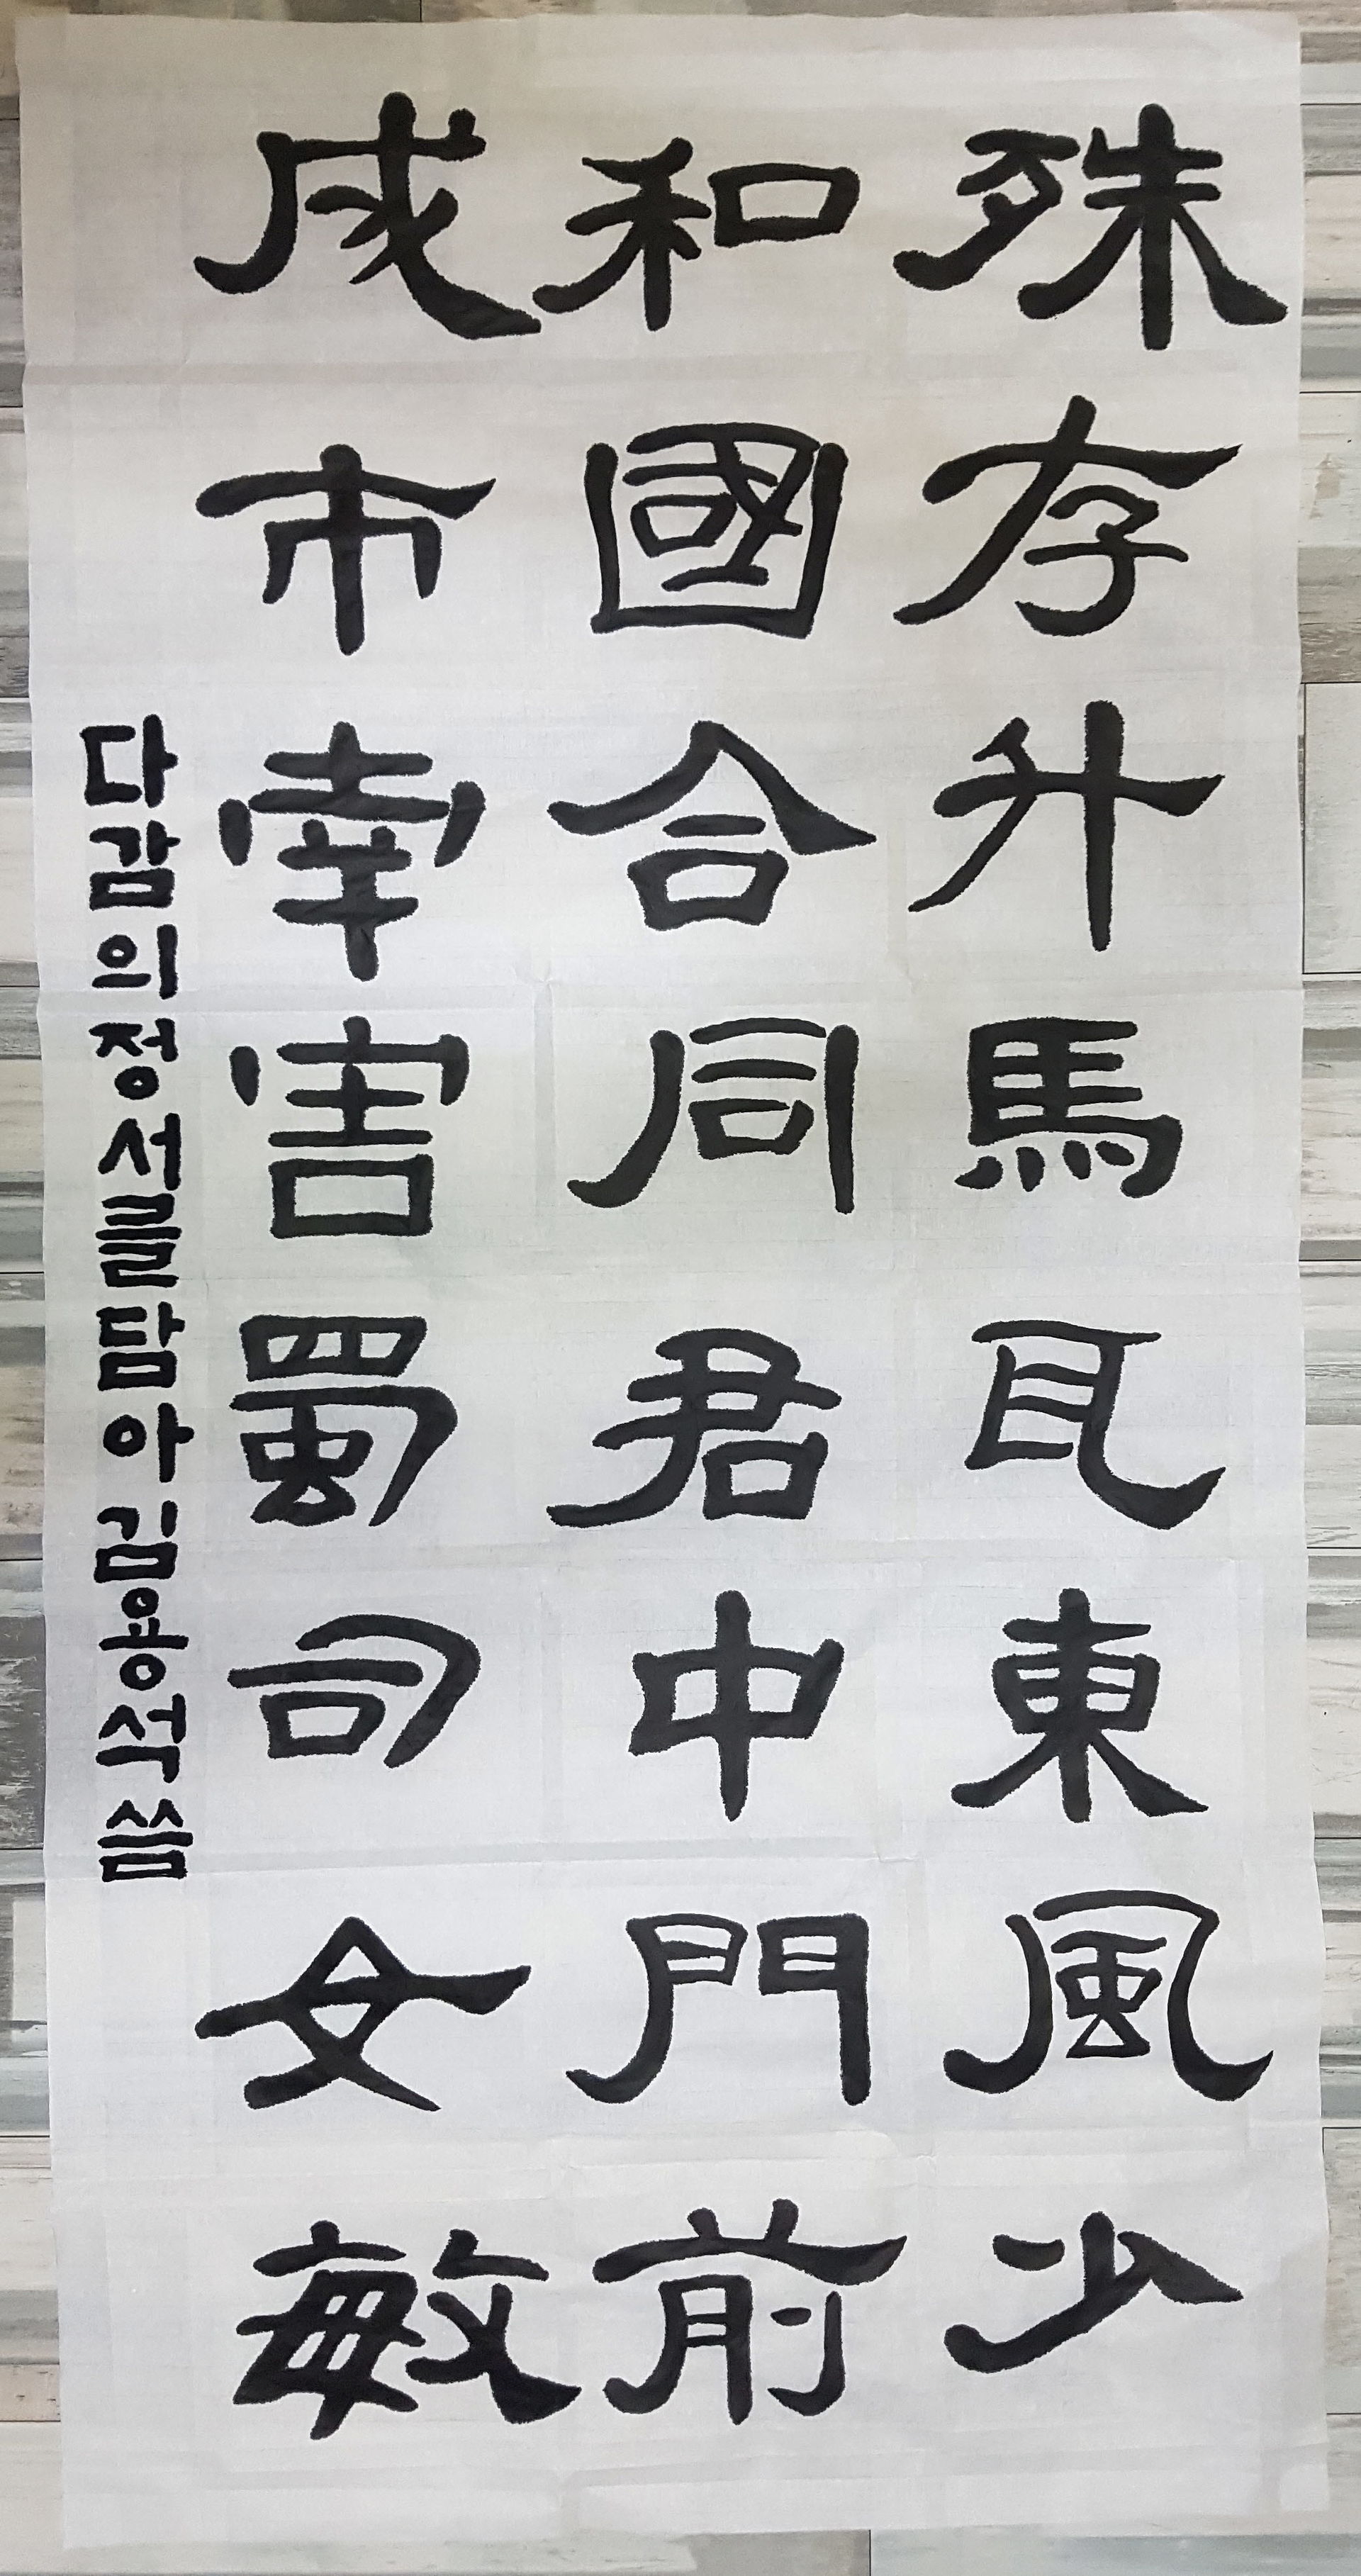 殊存升馬瓦東風少
和國合同君中門前
成市南害蜀司女敏
다감의 정서를 담아 김용석 씀